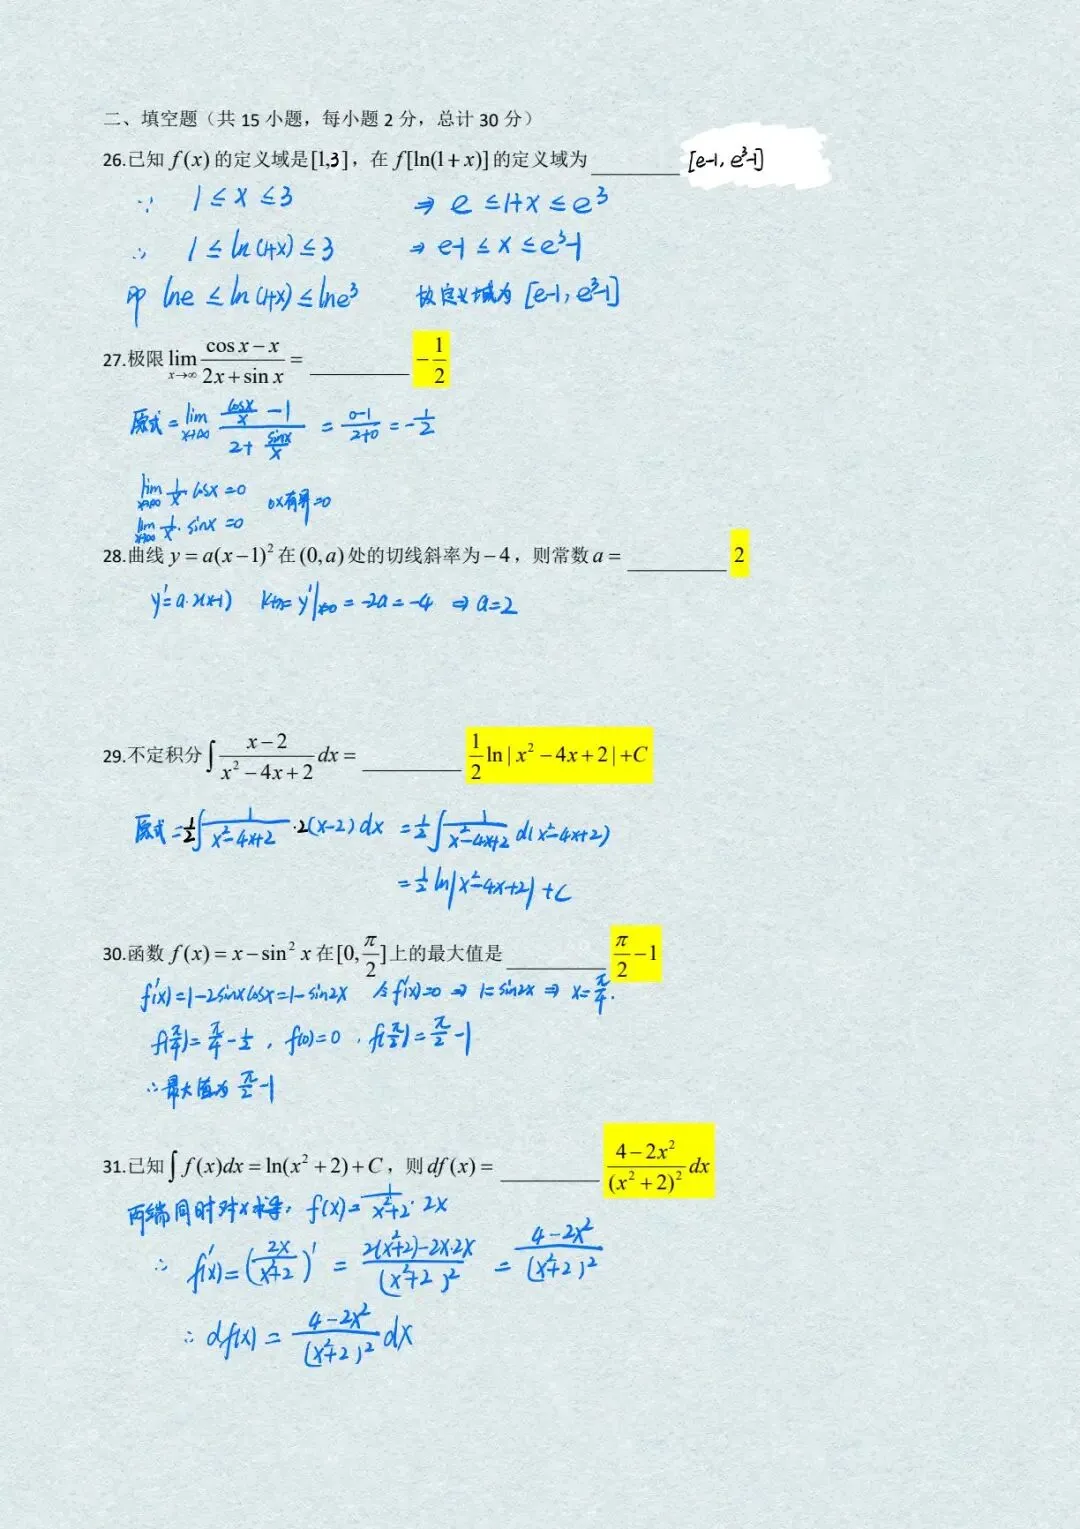 二、填空题（共 15 小题，每小题 2 分，总计 30 分）
26.已知 f(x) 的定义域是[1,3]，在 f[ln(1+x)] 的定义域为 ________ [e-1, e³-1]
∵ 1 ≤ x ≤ 3 ⇒ e ≤ 1+x ≤ e³
∴ 1 ≤ ln(1+x) ≤ 3 ⇒ e-1 ≤ x ≤ e³-1
即 lne ≤ ln(1+x) ≤ lne³ 故定义域为 [e-1, e³-1]
27.极限 lim_{x→∞} (cos x − x)/(2x + sin x) = ________ −1/2
原式 = lim_{x→∞} (cosx/x − 1)/(2 + sinx/x) = (0−1)/(2+0) = −1/2
lim_{x→∞} 1/x · cosx = 0 0×有界=0
lim_{x→∞} 1/x · sinx = 0
28.曲线 y = a(x−1)² 在 (0,a) 处的切线斜率为 −4，则常数 a = ________ 2
y' = a·2(x-1) k切 = y'|x=0 = -2a = -4 ⇒ a=2
29.不定积分 ∫ (x−2)/(x²−4x+2) dx = ________ 1/2 ln|x²−4x+2|+C
原式 = 1/2 ∫ 1/(x²-4x+2) ·2(x-2) dx = 1/2 ∫ 1/(x²-4x+2) d(x²-4x+2)
= 1/2 ln|x²-4x+2| + C
30.函数 f(x) = x − sin² x 在 [0, π/2] 上的最大值是 ________ π/2 −1
f'(x) = 1-2sinxcosx = 1-sin2x 令f'(x)=0 ⇒ 1=sin2x ⇒ x=π/4.
f(π/4) = π/4 - 1/2 , f(0)=0 , f(π/2) = π/2 -1
∴最大值为 π/2 -1
31.已知 ∫ f(x)dx = ln(x² + 2) + C，则 df(x) = ________ (4−2x²)/(x²+2)² dx
两端同时对x求导, f(x) = 1/(x²+2) · 2x
∴ f'(x) = (2x/(x²+2))' = (2(x²+2)-2x·2x)/(x²+2)² = (4-2x²)/(x²+2)²
∴ df(x) = (4-2x²)/(x²+2)² dx